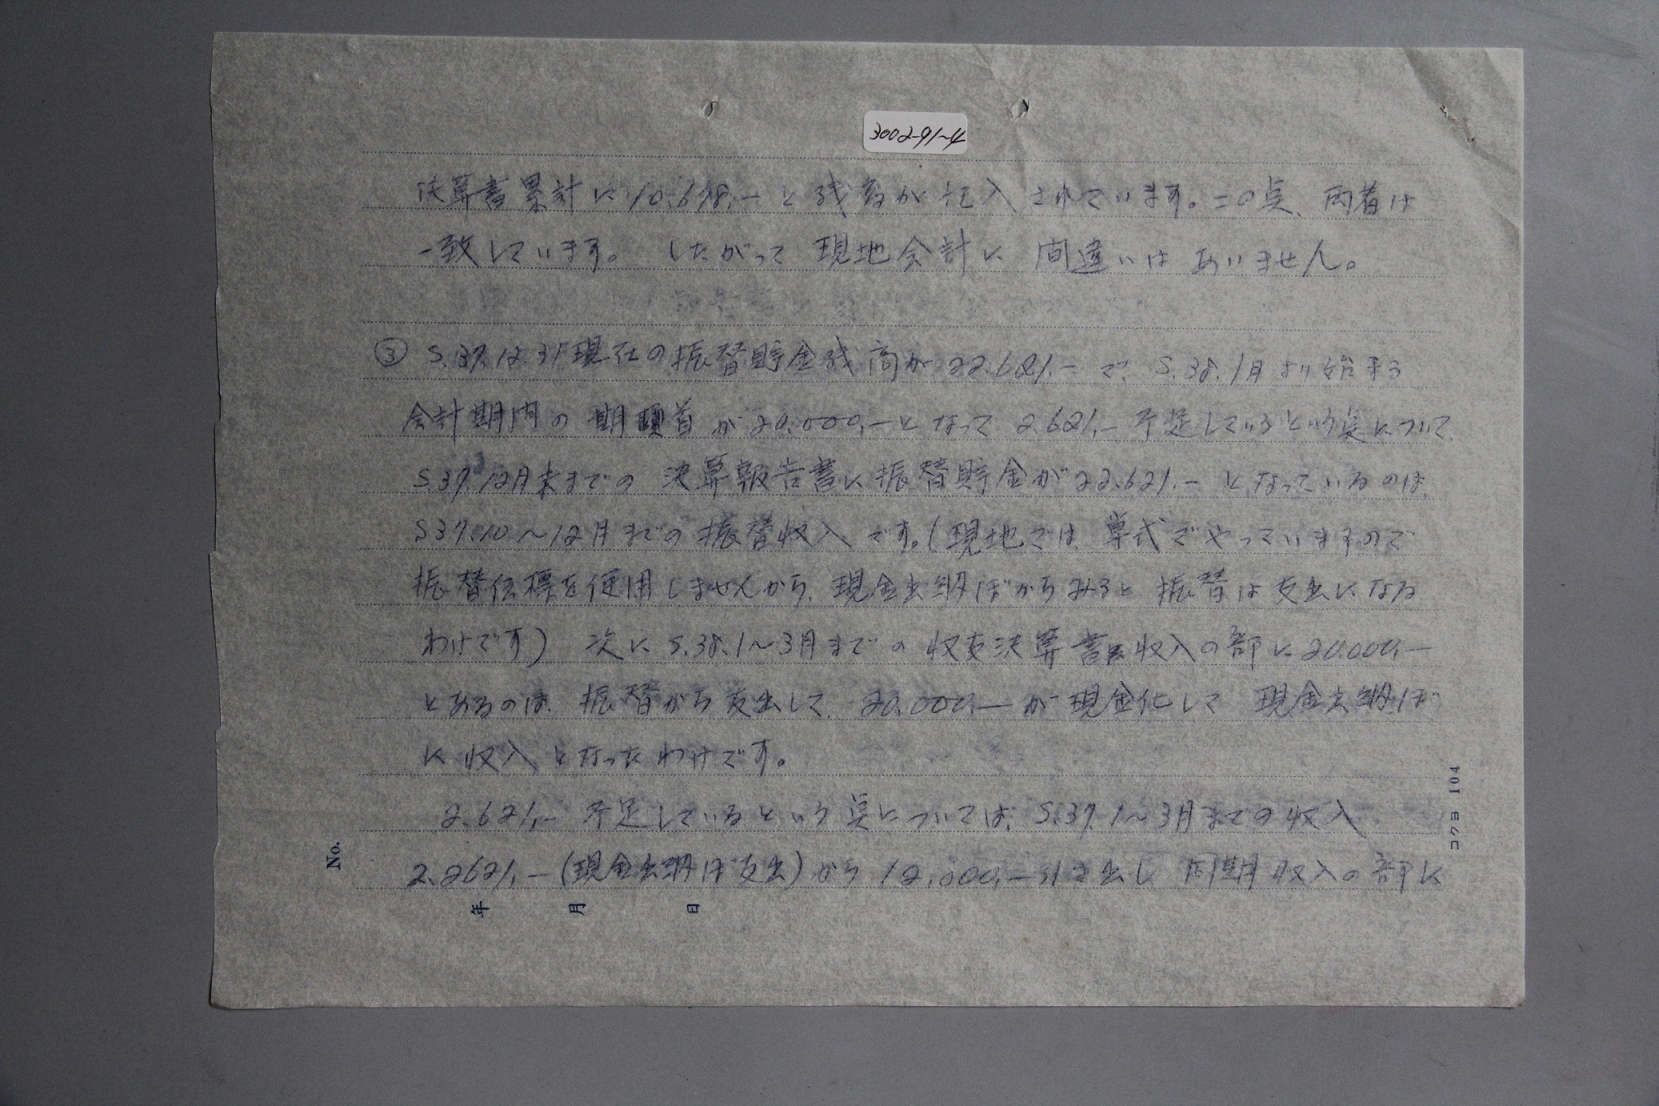 3002-91-4
決算書累計に10.698.-と残高が記入されています。この点、両者は
一致しています。 したがって 現地会計に 間違いは ありません。
③ S.37.12.31現在の振替貯金残高が22.621.-で、S.38.1月より始まる
会計期間の 期首が20.000.-となって 2.621.-不足しているという点について
S.37.12月末までの 決算報告書に振替貯金が22.621.-となっているのは、
S37.10～12月までの振替収入です。(現地では 単式でやっていますので
振替伝票を使用しませんから、現金出納ぼからみると 振替は支出になる
わけです) 次に S.38.1～3月までの収支決算書収入の部に20.000.-
とあるのは、振替から支出して、20.000.-が現金化して 現金出納ぼ
に収入となったわけです。
2.621.-不足しているという点については、S.37.1～3月までの収入
2.2621.-(現金出納ぼ支出)から12.000.-引き出し 同期収入の部に
No.
年 月 日
コクヨ 104